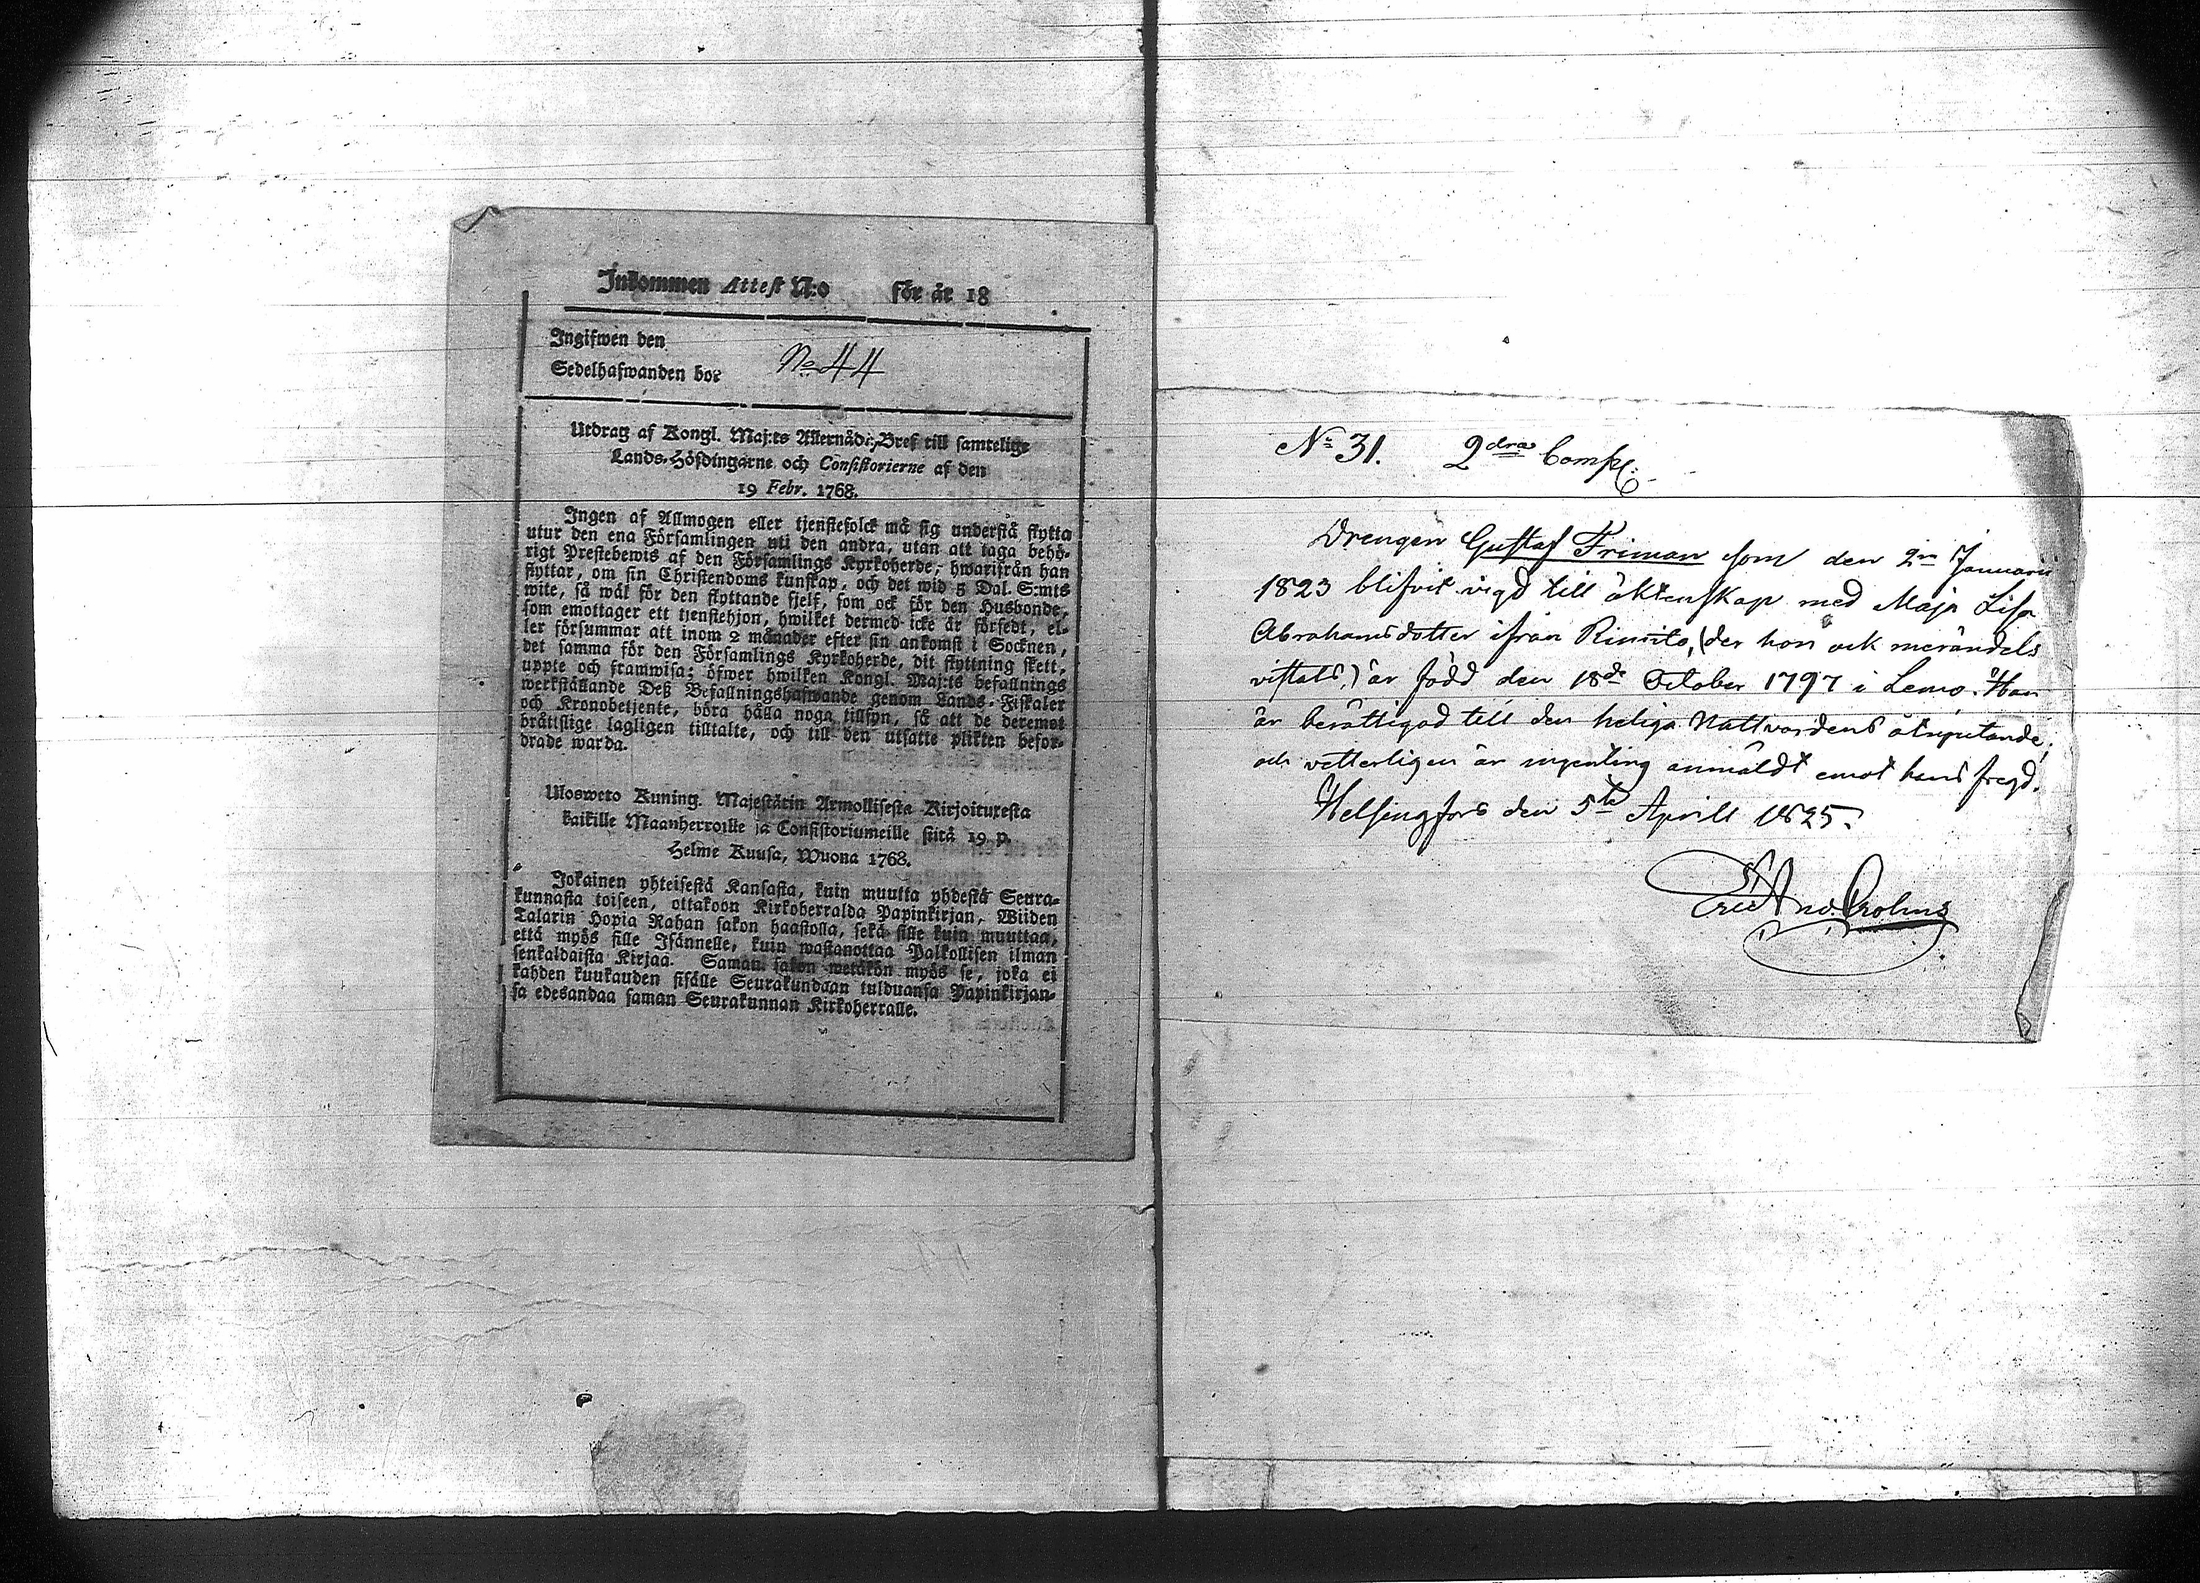 Inkommen Attest N:o för år 18
Ingifwen den
Sedelhafwanden bor No 44
Utdrag af Kongl. Maj:ts Allernådi. Bref till samtelige
Lands-Höfdingarne och Consistorierne af den
19 Febr. 1768.
Ingen af Allmogen eller tjenstefolck må sig understå flytta
utur den ena Församlingen uti den andra, utan att taga behö-
rigt Prestebewis af den Församlings Kyrkoherde, hwarifrån han
flyttar, om sin Christendoms kunskap, och det wid 5 Dal. S:mts
wite, så wäl för den flyttande sjelf, som ock för den Husbonde,
som emottager ett tjenstehjon, hwilket dermed icke är försedt, el-
ler försummar att inom 2 månader efter sin ankomst i Socknen,
det samma för den Församlings Kyrkoherde, dit flyttning skett,
uppte och framwisa; öfwer hwilken Kongl. Maj:ts befallnings
werkställande Deß Befallningshafwande genom Lands-Fiskaler
och Kronobetjente, böra hålla noga tillsyn, så att de deremot
bråttslige lagligen tilltalte, och till den utsatte plikten befor-
drade warda.
Ulosweto Kuning. Majestätin Armollisesta Kirjoituxesta
kaikille Maanherroille ja Consistoriumeille siitä 19 p.
Helme Kuusa, Wuona 1768.
Jokainen yhteisestä Kansasta, kuin muutta yhdestä Seura-
kunnasta toiseen, ottakoon Kirkoherralda Papinkirjan, Wiiden
Talarin Hopia Rahan sakon haastolla, sekä sille kuin muuttaa,
että myös sille Isännelle, kuin wastanottaa Palkollisen ilman
senkaldaista Kirjaa. Saman sakon wetäkön myös se, joka ei
kahden kuukauden sisälle Seurakundaan tulduansa Papinkirjan-
sa edesandaa saman Seurakunnan Kirkoherralle.
No 31. 2dra Comp.
Drengen Gustaf Friman som den 2n Januarii
1823 blifvit vigd till äktenskap med Maja Lisa
Abrahamsdotter ifrån Rimito, (der hon ock merändels
vistats,) är född den 18de October 1797 i Lemo. Han
är berättigad till den heliga Nattvardens åtnjutande,
och vetterligen är ingenting anmäldt emot hans fregd.
Helsingfors den 5te Aprill 1825.